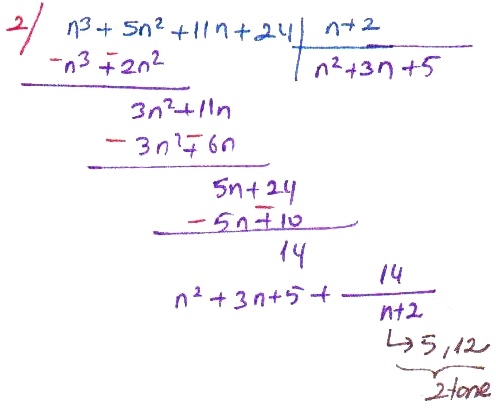 2/ n³ + 5n² + 11n + 24 | n+2
- n³ ∓ 2n² | n² + 3n + 5
3n² + 11n
- 3n² ∓ 6n
5n + 24
- 5n ∓ 10
14
n² + 3n + 5 + 14/(n+2)
↳ 5, 12
2 tane